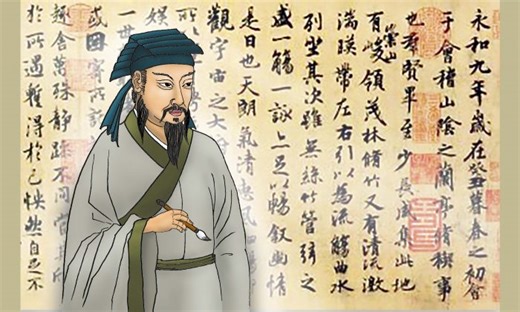 永和九年歲在癸丑暮春之初會
于會稽山陰之蘭亭脩稧事
也群賢畢至少長咸集此地
有崇山峻領茂林脩竹又有清流激
湍暎帶左右引以為流觴曲水
列坐其次雖無絲竹管弦之
盛一觴一詠亦足以暢敘幽情
是日也天朗氣清惠風
觀宇宙之大
娛
一世
或因寄所
趣舍萬殊靜躁不同當其
於所遇蹔得於己怏然自足不